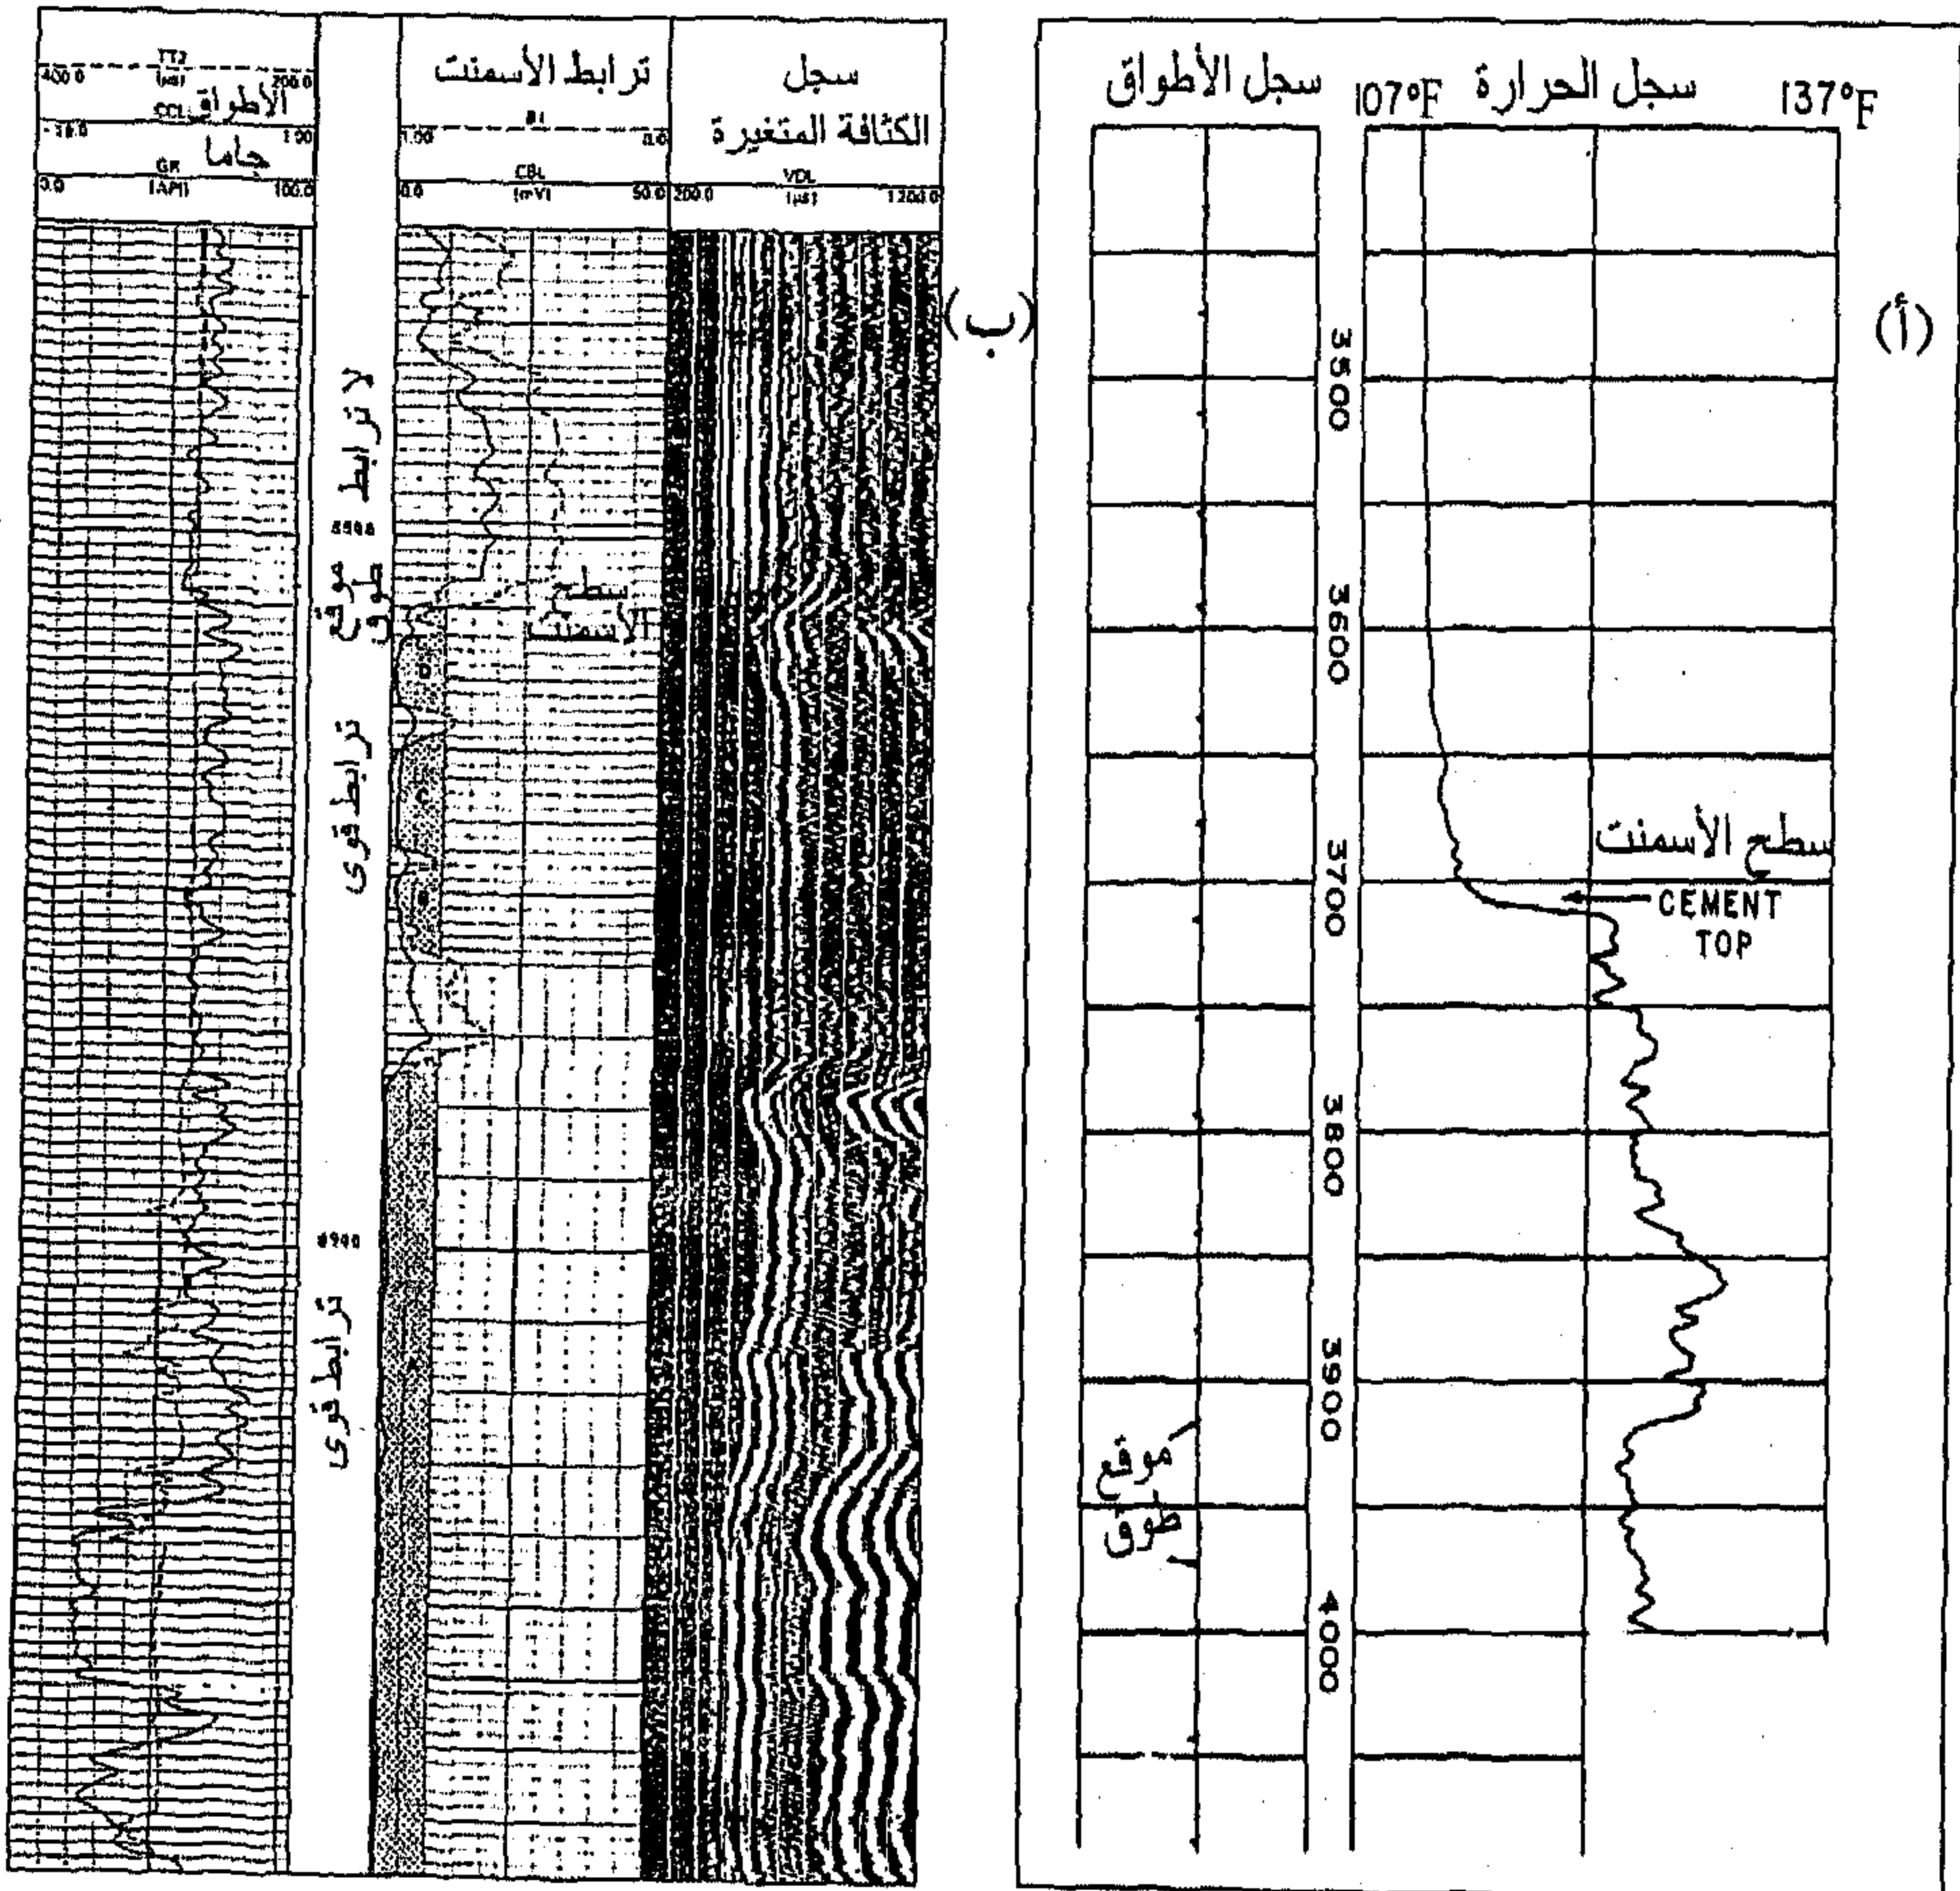 (أ)
سجل الأطواق
107°F
سجل الحرارة
137°F
3500
3600
3700
سطح الأسمنت
CEMENT
TOP
3800
3900
موقع
طوق
4000
(ب)
TT2
400.0 (µs) 200.0
الأطواق
CCL
1.00
جاما
GR
0.0 (API) 100.0
ترابط الأسمنت
1.00 BI 0.0
CBL
0.0 (mV) 50.0
سجل
الكثافة المتغيرة
VDL
200.0 (µs) 1200.0
لا ترابط
موقع
طوق
سطح
الأسمنت
D
C
B
ترابط قوى
ترابط قوى